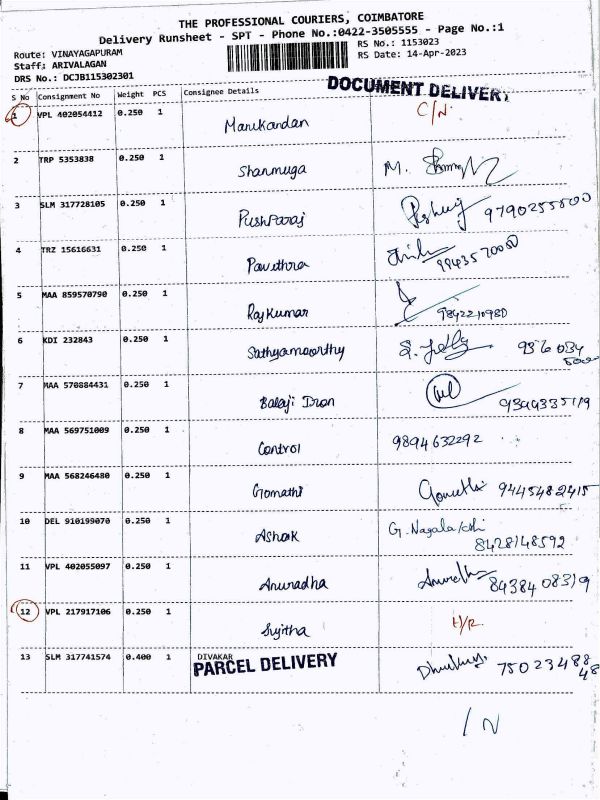 THE PROFESSIONAL COURIERS, COIMBATORE
Delivery Runsheet - SPT - Phone No.:0422-3505555 - Page No.:1
Route: VINAYAGAPURAM
Staff: ARIVALAGAN
DRS No.: DCJB115302301
RS No.: 1153023
RS Date: 14-Apr-2023
DOCUMENT DELIVERY
S No Consignment No Weight PCS Consignee Details
1 VPL 402054412 0.250 1 Manikandan C/N.
2 TRP 5353838 0.250 1 Shanmuga M.
3 SLM 317728105 0.250 1 Pushparaj 9790255500
4 TRZ 15616631 0.250 1 Pavithra
5 MAA 859570790 0.250 1 RajKumar 9842210980
6 KDI 232843 0.250 1 Sathyamoorthy
7 MAA 570884431 0.250 1 Balaji Iron
8 MAA 569751009 0.250 1 Control 9894632292
9 MAA 568246480 0.250 1 Gomathi 9445482415
10 DEL 910199070 0.250 1 Ashok G. Nagalakshi
8428148592
11 VPL 402055097 0.250 1 Anuradha 8438408319
12 VPL 217917106 0.250 1 Sujitha
13 SLM 317741574 0.400 1 DIVAKAR
PARCEL DELIVERY